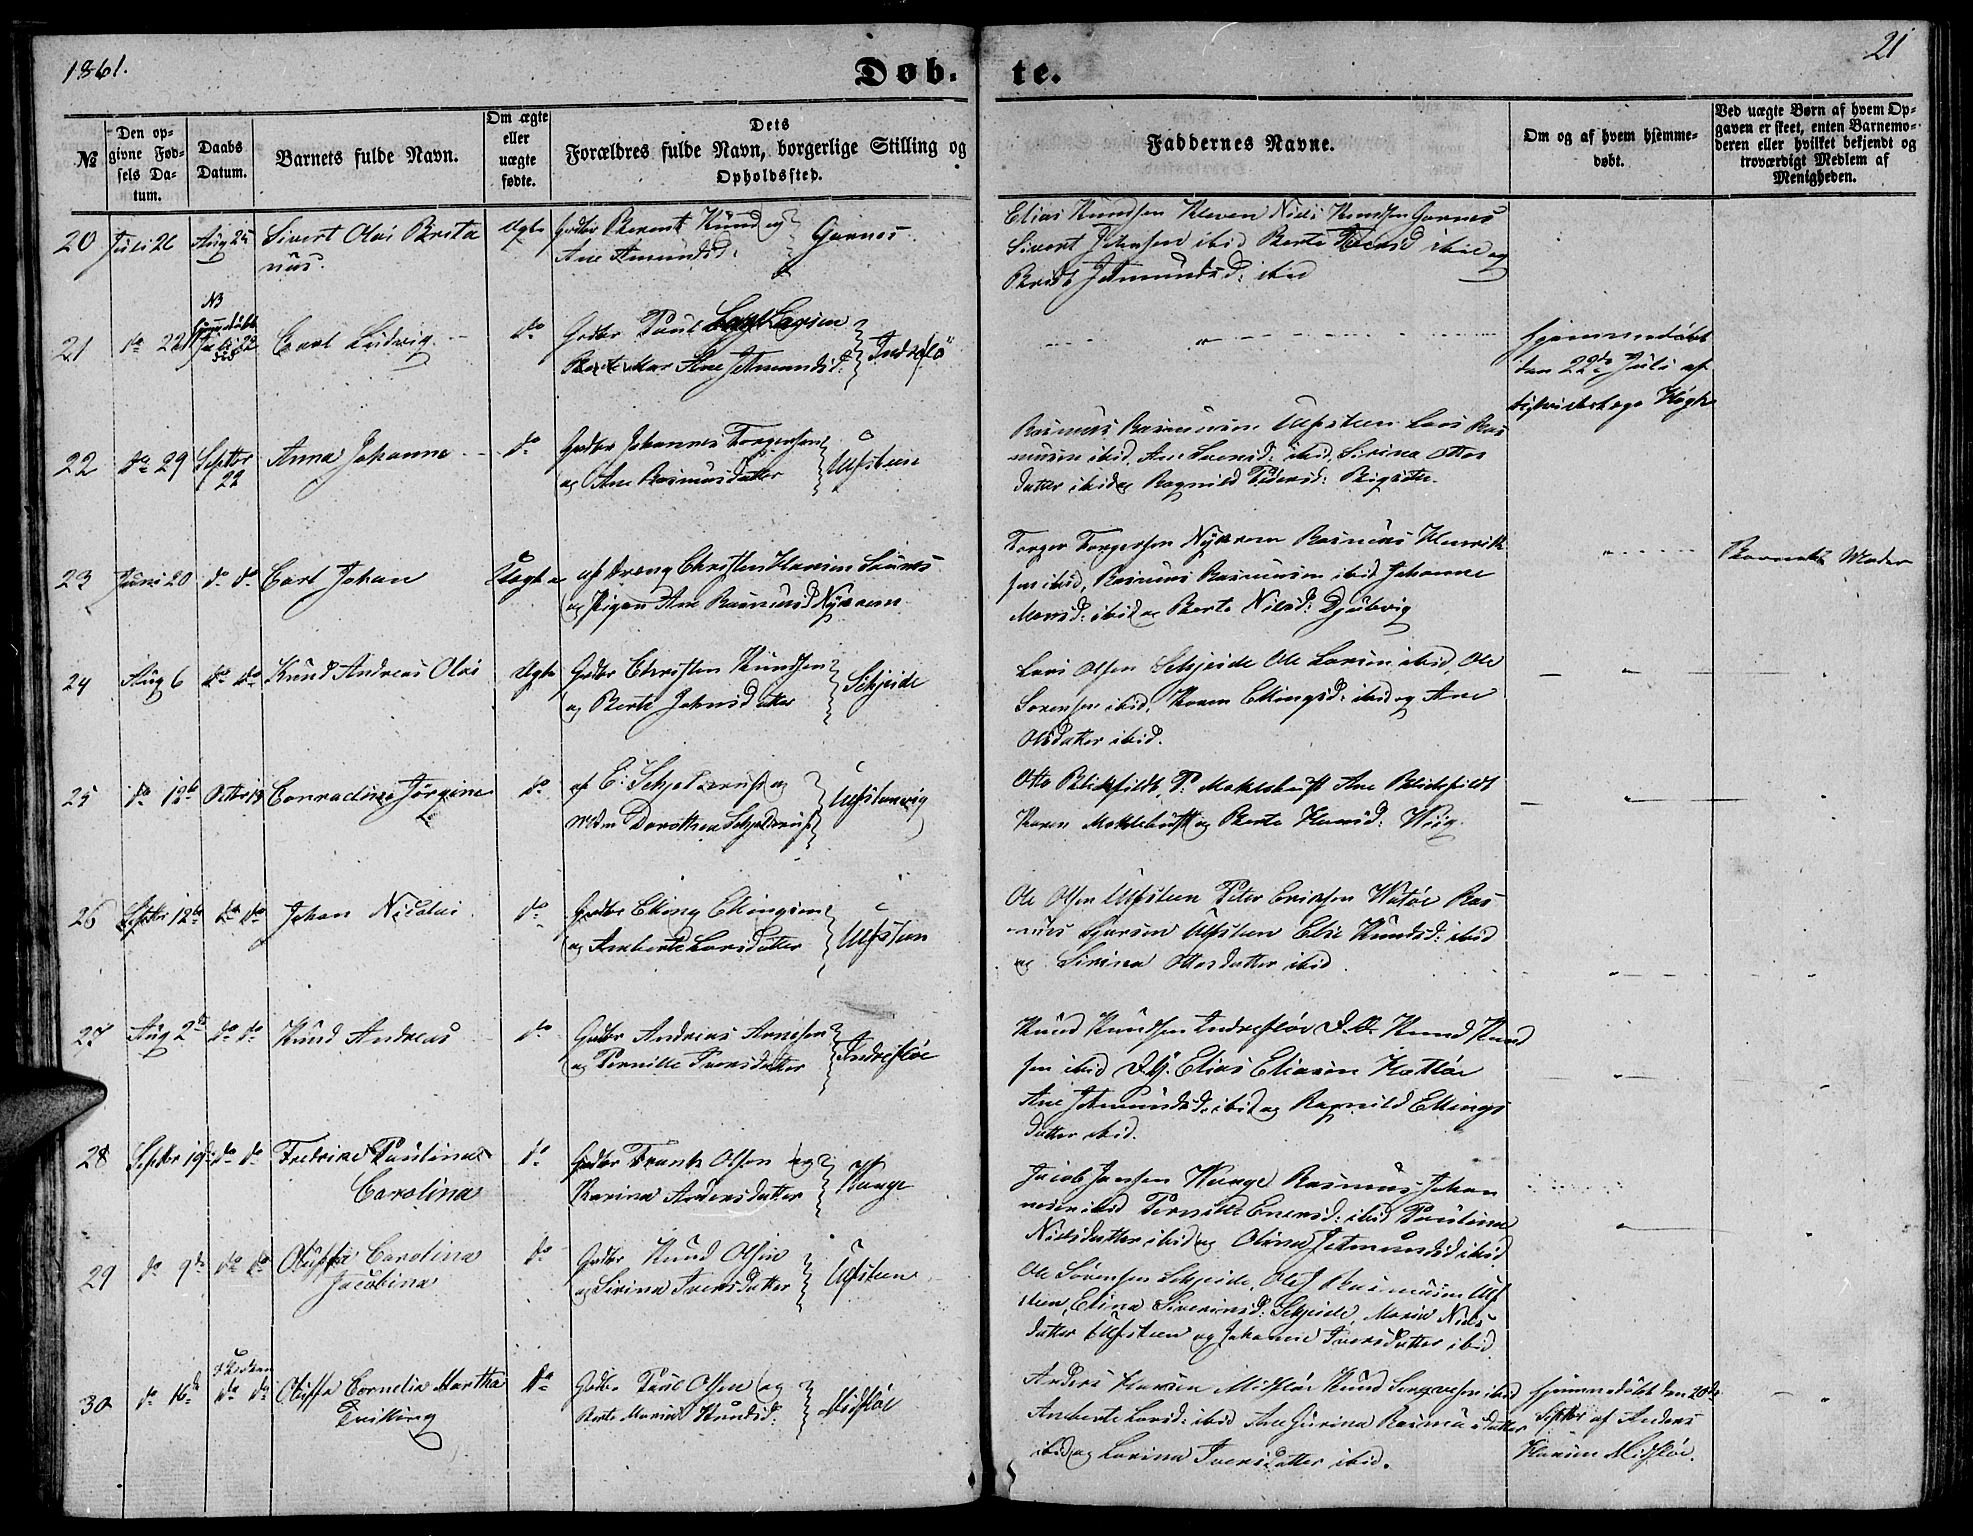 1861.
Døb-
te.
21
№
Den op-
givne Fød-
sels Da-
tum.
Daabs
Datum.
Barnets fulde Navn.
Om ægte
eller
uægte
fødte.
Dets
Forældres fulde Navn, borgerlige Stilling og
Opholdssted.
Faddernes Navne.
Om og af hvem hjemme-
døbt.
Ved uægte Børn af hvem Op-
gaven er skeet, enten Barnemo-
deren eller hvilket bekjendt og
troværdigt Medlem af
Menigheden.
20 Juli 26 Aug 25 Sivert Olai Brita
nus.
Ane Amundsd: Garnes
Elias Knudsen Kleven Niels Knudsen Garnes
Sivert Johnsen ibid Berte ibid og
Berte Jetmundsd: ibid
21 do 22 NB
Hjemmedøbt
Juli 22
Carl Ludvig do Gmdbr Paul Larsen
Ane Jetmundsd:
Hjemmedøbt
den 22de Juli af
22 do 29 Septbr
22
Anna Johanna do Gmdbr Johannes Torgersen
og Ane Rasmusdatter Ulfsteen
Rasmus Rasmussen Ulfsteen Lars Ras
mussen ibid, Ane Larsd: ibid, Sirina Ottos
datter ibid og Ragnild Pedersd:
23 Juni 20 do do Carl Johan Uægte af Dreng Christen Hansen
og Pigen Ane Rasmusd
Torger Torgersen Rasmus Henrik
sen ibid, Rasmus Rasmussen ibid Johanne
ibid og Berte Nilsd: Djubvig
Barnets Moder
24 Aug 6 do do Knud Andreas Olai Ægte Gmdbr Christen Knudsen
og Berte Johnsdatter Schjeide
Lars Olsen Schjeide Ole Larsen ibid, Ole
Sørensen ibid, Karen Ellingsd: ibid og Ane
Olsdatter ibid.
25 do 12te Octbr 13 Conradine Jørgine do af E: Schjelderup og
Mdm Dorothea Schjelderup Ulfsteenvig
Otto Blichfeldt, P: Maklebust Ane Blichfeldt
Karen Maklebust og Berte Hansd: Wiig.
26 Septbr 12te do do Johan Nicolai do Gmdbr Elling Ellingsen
og Amberte Larsdatter Ulfsteen
Ole Olsen Ulfsteen Peter Eriksen Ras
mus Ulfsteen Else Knudsd: ibid
og Sirina Ottosdatter ibid
27 Aug 2de do do Knud Andreas do Gmdbr Andreas Arnesen
og Pernille Iversdatter Indrefløe
Knud Knudsen Indrefløe Knud Knud
sen ibid Elias Eliasen
Ane Jetmundsd: ibid og Ragnild Ellings
datter ibid.
28 Septbr 19de do do Fredrike Paulina
Carolina
do Gmdbr Frants Olsen og
Karina Andersdatter Waage
Jacob Jansen Waage Rasmus Johan
nesen ibid Pernille ibid Paulina
Nielsdatter ibid og Olina Jetmundsd ibid.
29 do 9de do do Oluffa Carolina
Jacobina
do Gmdbr Knud Olsen
og Sirina Iversdatter Ulfsteen
Ole Sørensen Schjeide, Ole J Rasmussen Ulf
steen, Elina Siverinsd: Schjeide, Maria Niels
datter Ulfsteen og Johanne Iversdatter ibid
30 do 16de do do Oluffa Cornelia Martha
Tvilling
do Gmdbr Paul Olsen og
Berte Maria Knudsd: Midtfløe
Anders Hansen Midtfløe Knud ibid
Amberte Larsd: ibid Ane Gurina Rasmusdatter
ibid og Larina Iversdatter ibid.
Hjemmedøbt den 20de
Septbr af Anders
Hansen Midtfløe.